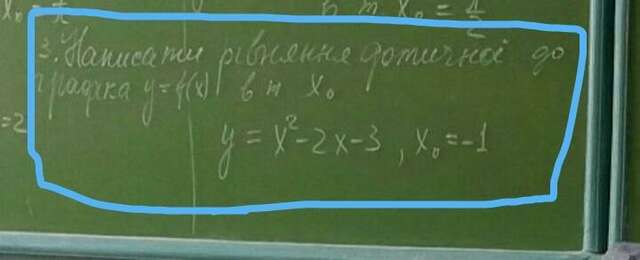 x₀ =
в т. x₀ = π/2
3. Написати рівняння дотичної до
графіка y=f(x) в т x₀
=2
y = x² - 2x - 3 , x₀ = -1